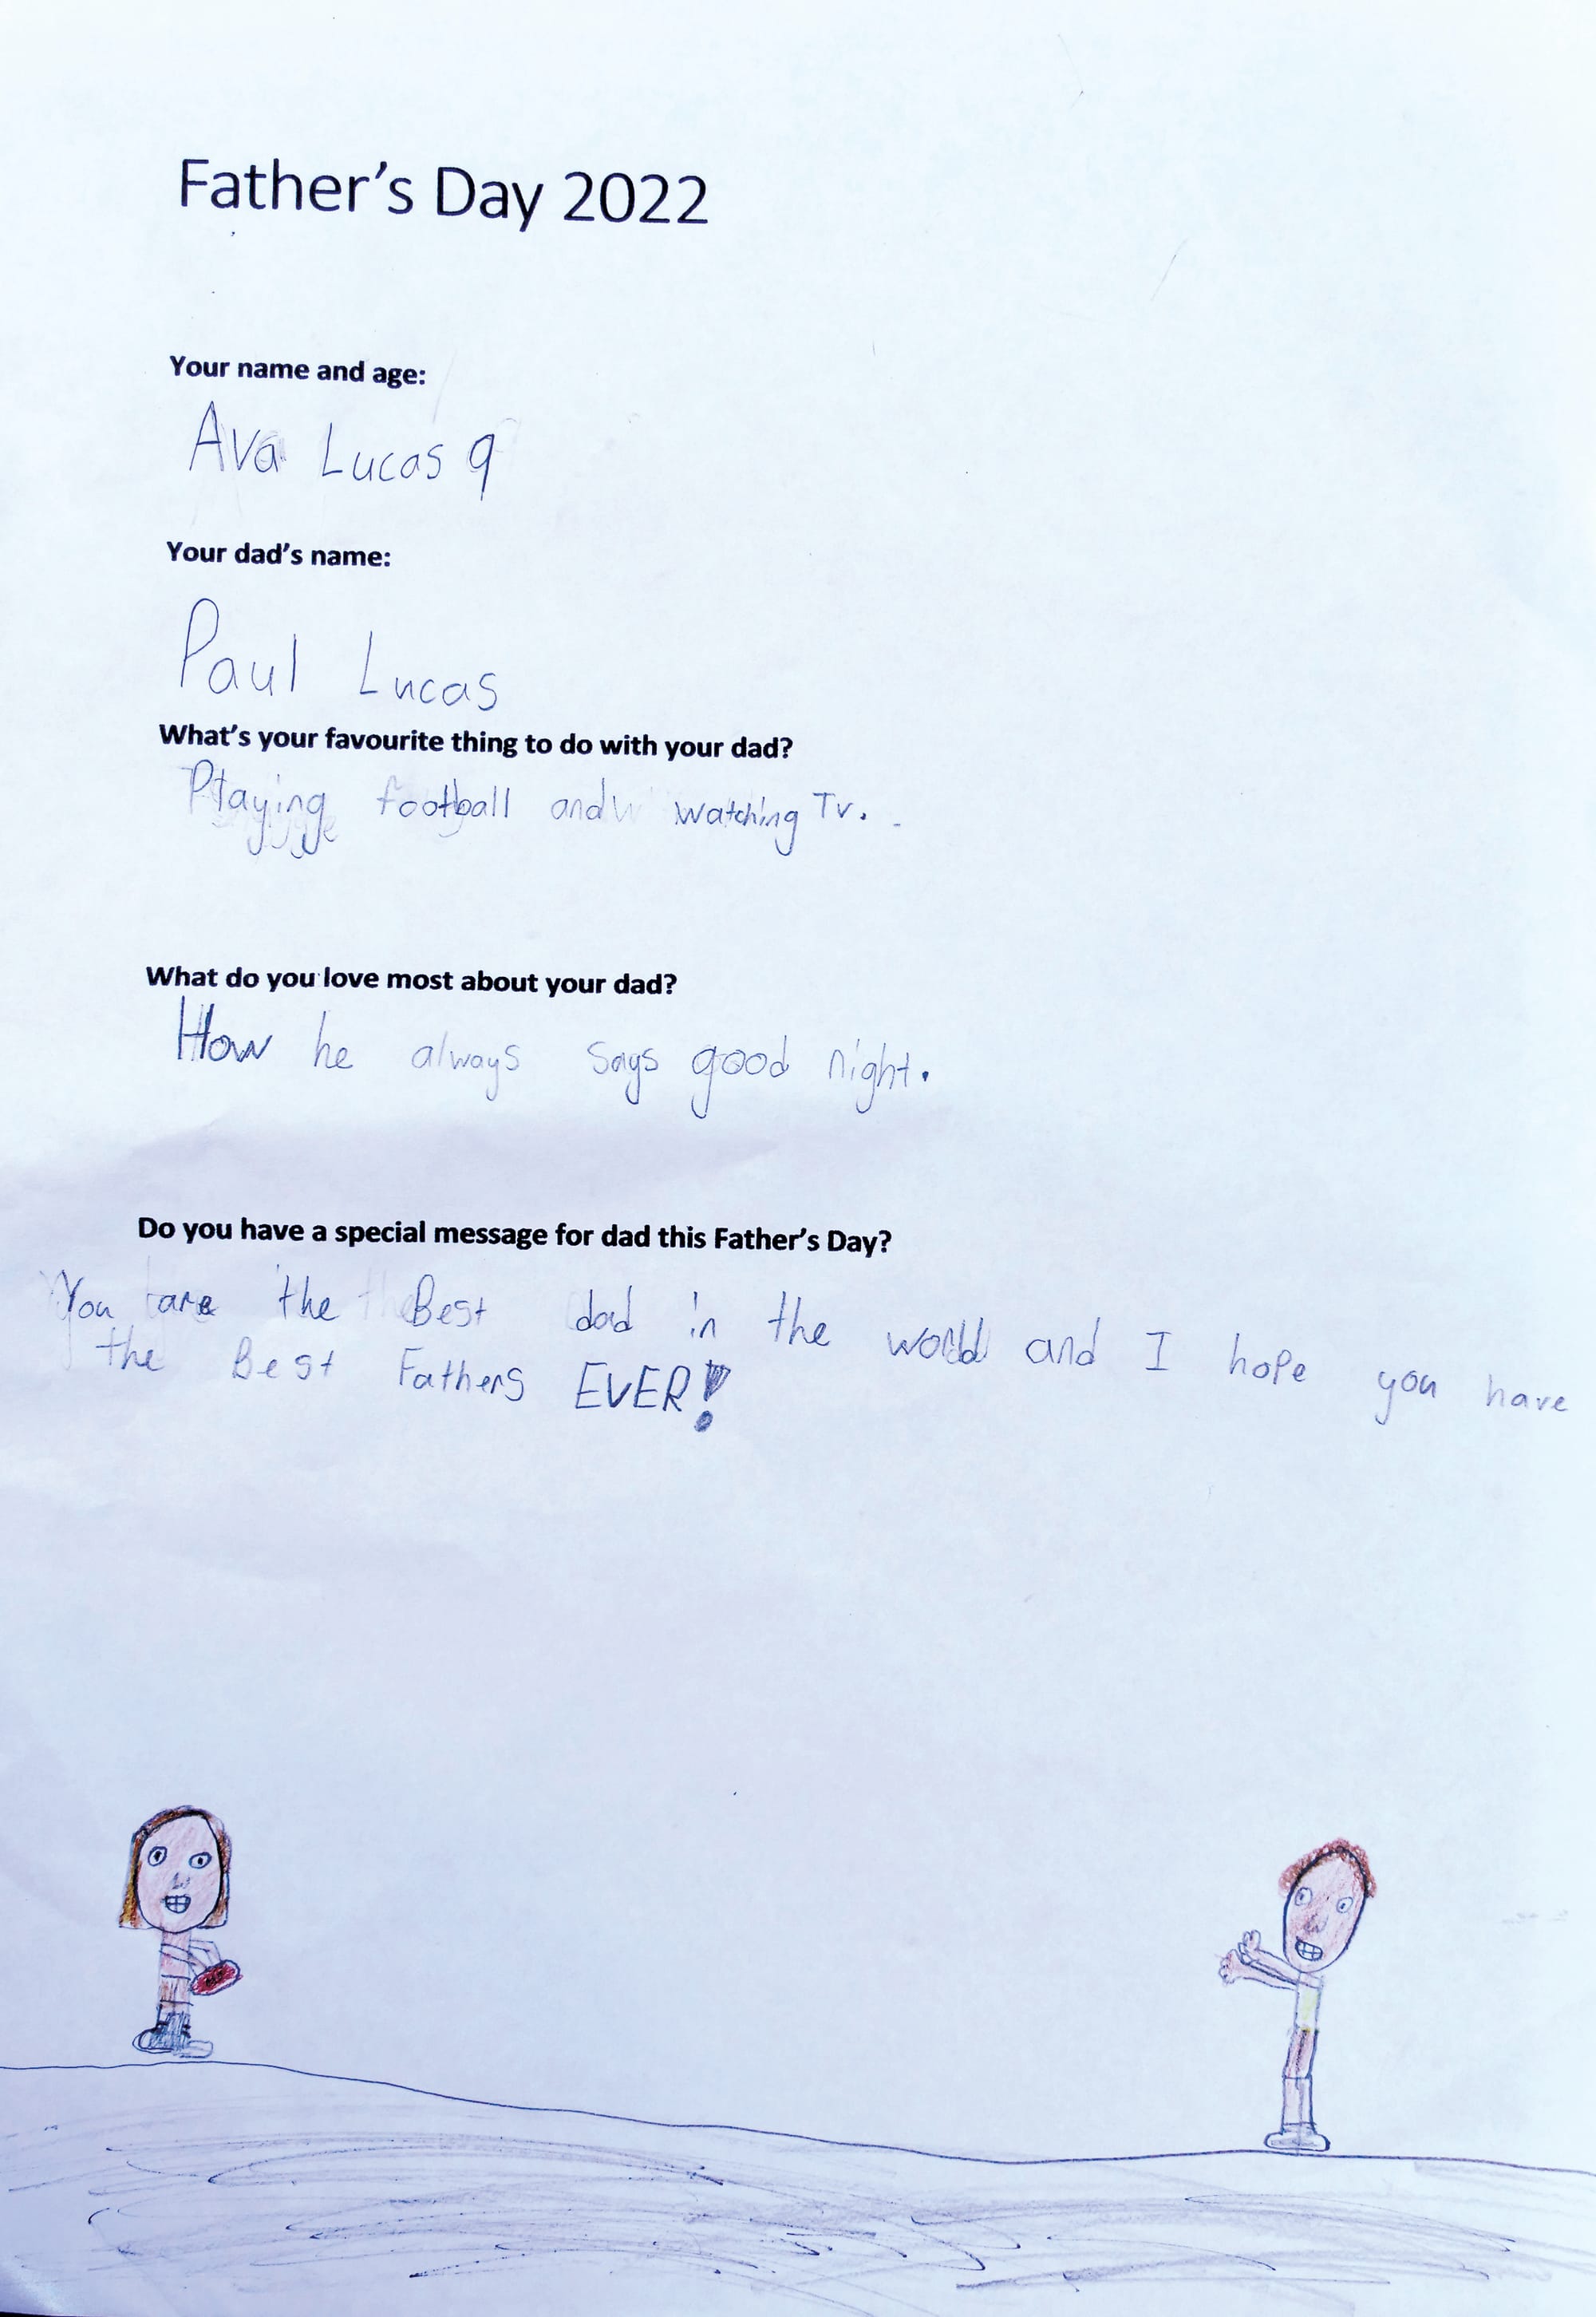 Father's Day 2022
Your name and age:
Ava Lucas 9
Your dad's name:
Paul Lucas
What's your favourite thing to do with your dad?
Playing football and watching Tv.
What do you love most about your dad?
How he always says good night.
Do you have a special message for dad this Father's Day?
You are the Best dad in the world and I hope you have
the Best Fathers EVER!